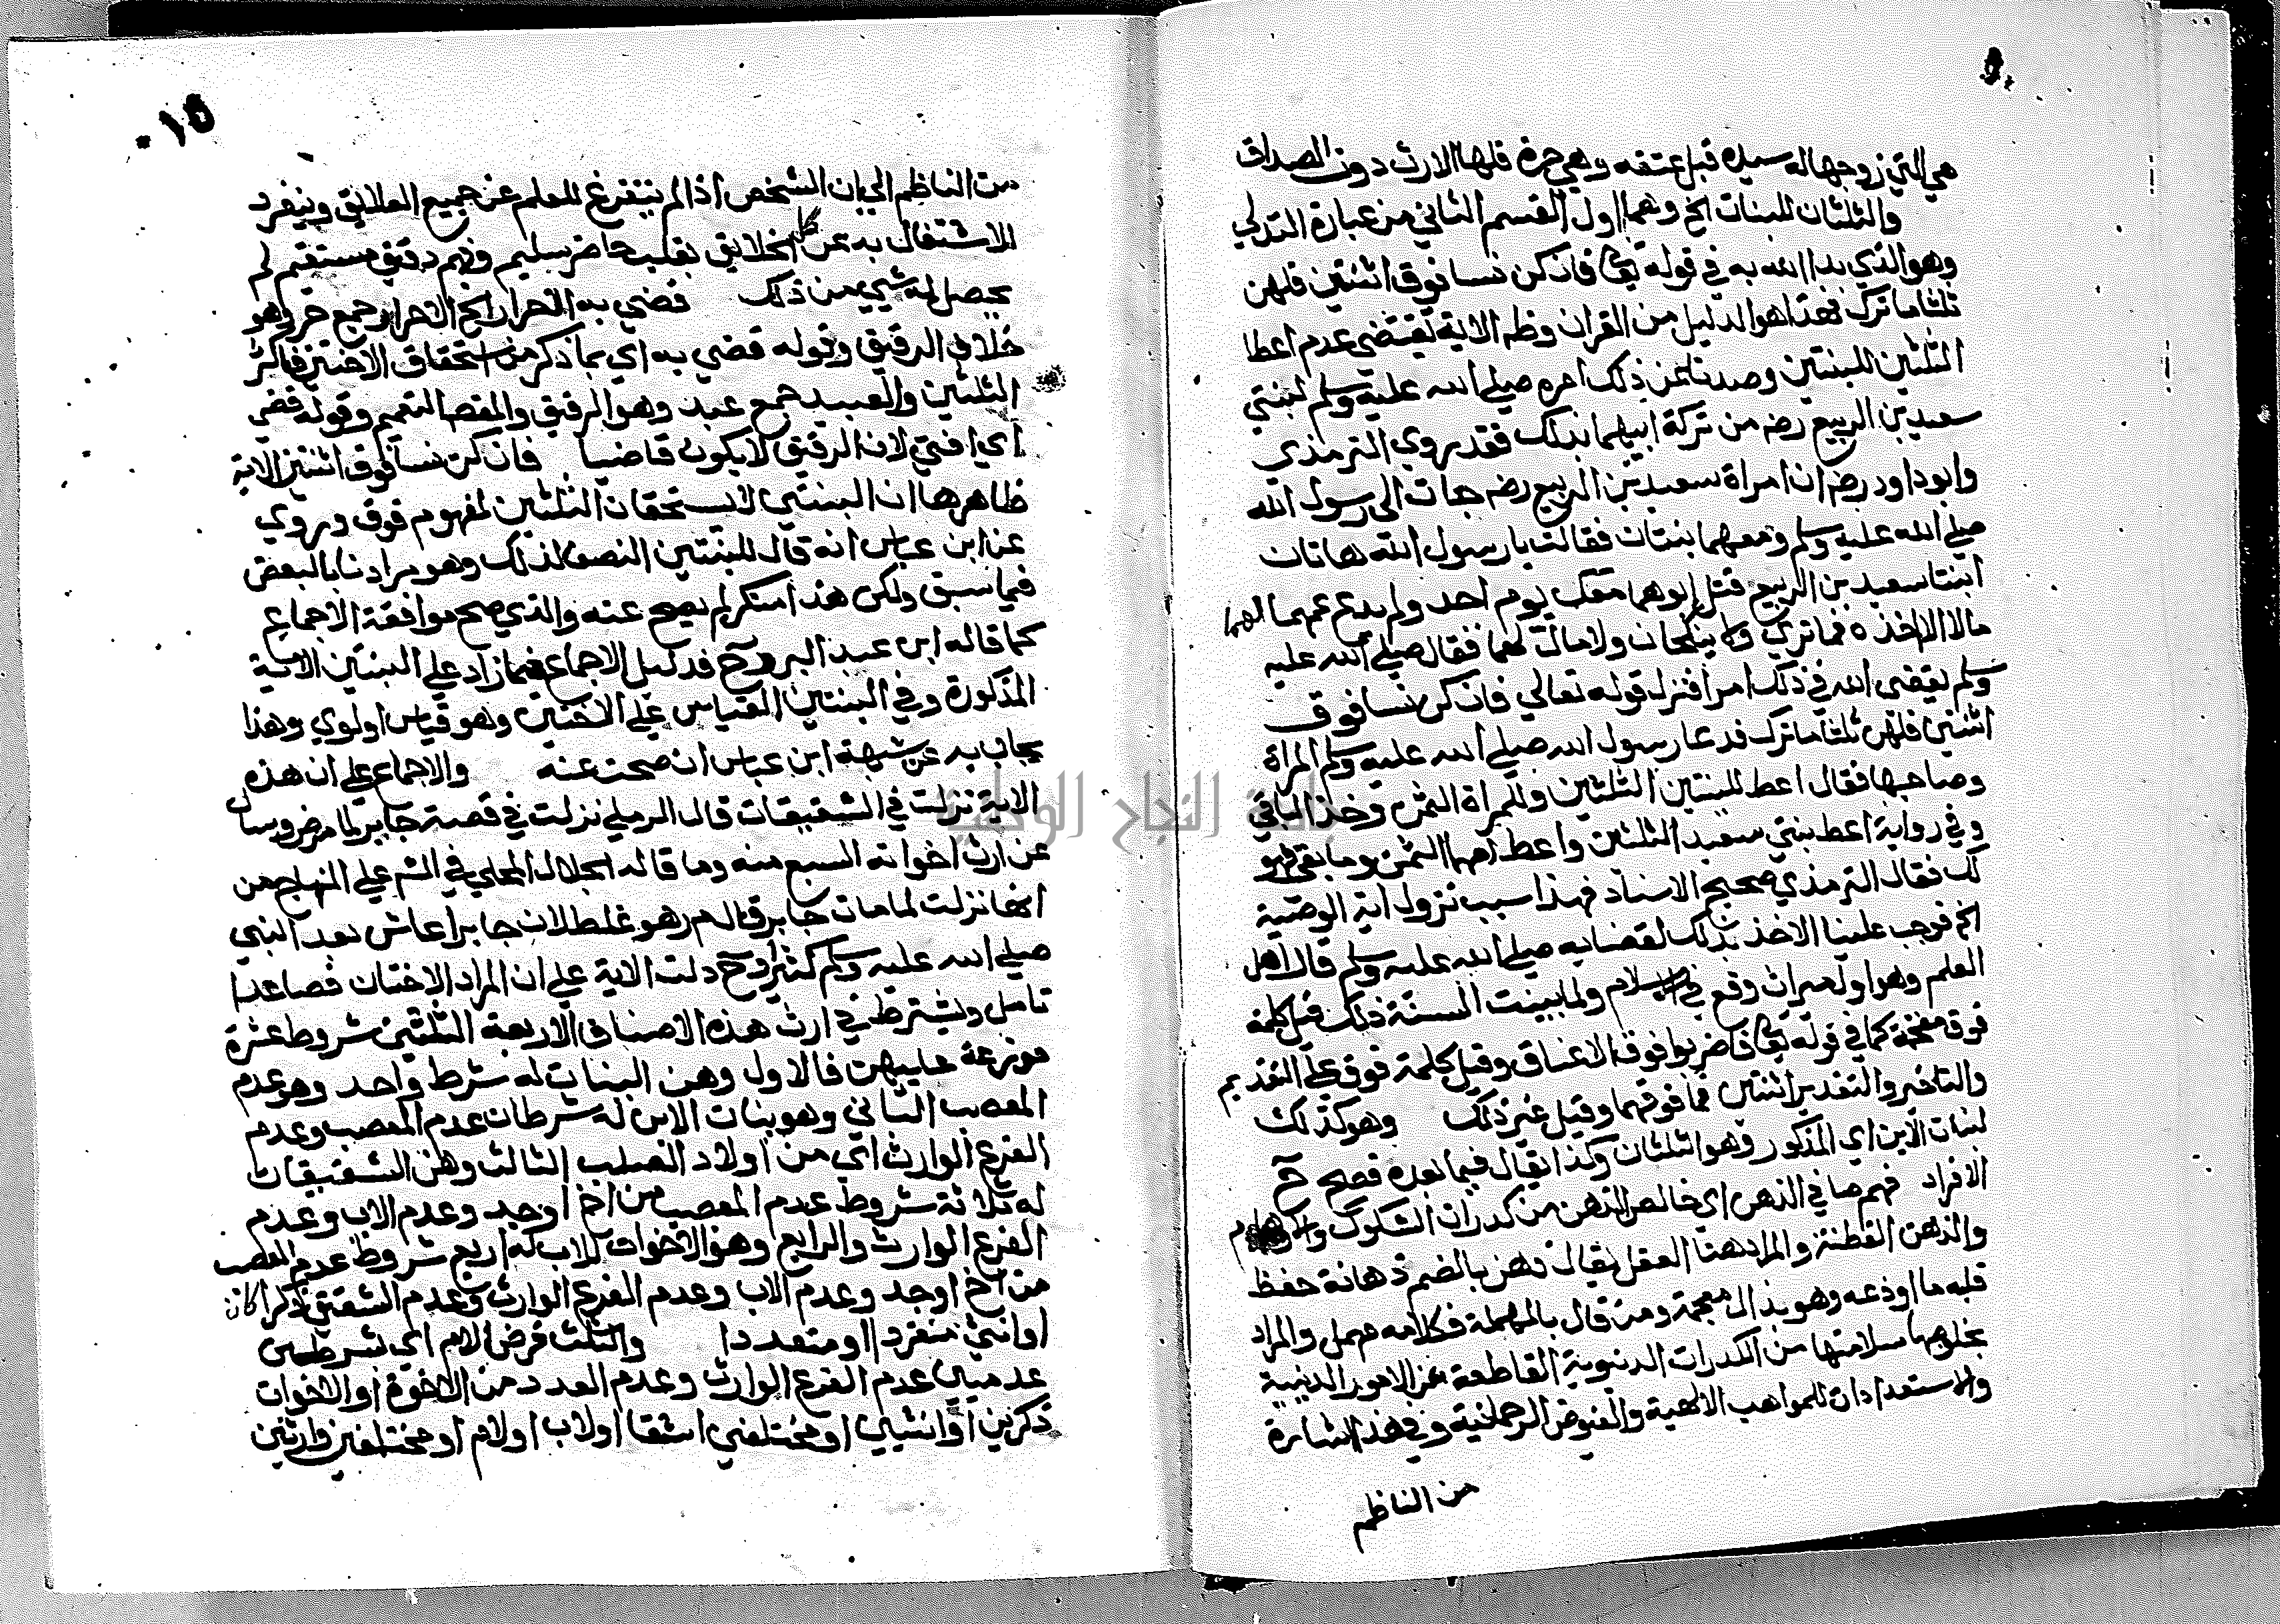 هي التي زوجها له سيده قبل عتقه وهي حرة فلها الارث دون الصداق
والثلثان للبنات الخ وهما اول القسم الثاني من عبارة التدلي
وهو الذي بدا الله به في قوله تعا فان كن نسا فوق اثنتين فلهن
ثلثا ما ترك فهذا هو الدليل من القران وظم الاية تقتضي عدم اعطا
الثلثين للبنتين وصدنا عن ذلك امره صلى الله عليه وسلم لبنتي
سعيد بن الربيع رضه من تركة ابيهما بذلك فقد روي الترمذي
وابو داود رضه ان امراة سعيد بن الربيع رضه جات الى رسول الله
صلى الله عليه وسلم ومعهما بنتان فقالت يا رسول الله هاتان
ابنتا سعيد بن الربيع قتل ابوهما معك يوم احد ولم يدع عمهما لهما
مالا الا اخذه فما تري ولا ينكحان ولا مال لهما فقال صلى الله عليه
وسلم يقضي الله في ذلك امرا فنزل قوله تعالي فان كن نسا فوق
اثنتين فلهن ثلثا ما ترك فدعا رسول الله صلى الله عليه وسلم المراة
وصاحبها فقال اعط للبنتين الثلثين وللمراة الثمن وخذ الباقي
وفي رواية اعط بنتي سعيد الثلثين واعط امهما الثمن وما بقي فهو
لك فقال الترمذي صحيح الاسناد فهذا سبب نزول اية الوصية
الخ فوجب علينا الاخذ بذلك لقضايه صلى الله عليه وسلم قال اهل
العلم وهو اول ميراث وقع في الاسلام ولما بينت السنة ذلك قيل كلمة
فوق مفخمة كما في قوله تعا فاضربوا فوق الاعناق وقيل كلمة فوق على التقديم
والتاخير والتقدير اثنتين فما فوقهما وقيل غير ذلك وهو كذلك
لبنات الابن اي المذكور وهو الثلثان وكذا يقال فيما بعده فصح ح
الافراد فهم صافي الذهن اي خالص الذهن من كدرات الشكوك والاوهام
والذهن الفطنة والمراد هنا العقل يقال ذهن بالضم ذهانة حفظ
قلبه ما اودعه وهو بذال معجمة ومن قال بالمهملة فكلامه مهمل والمراد
بخلوصها سلامتها من الكدرات الدنيوية القاطعة عن الامور الدينية
والاستعدادات للمواهب الالهية والفيوض الرحمانية وفي هذا اشارة
من الناظم
١٥
من الناظم الى ان الشخص اذا لم يتفرغ للعلم عن جميع العلايق وينفرد
للاشتغال به عن كل الخلايق بقلب حاضر سليم وفهم دقيق مستقيم لم
يحصل له شيي من ذلك قضي به الاحرار الخ الاحرار جمع حر وهو
خلاف الرقيق وقوله قضي به اي بما ذكر من استحقاق الاختين فاكثر
الثلثين والعبيد جمع عبد وهو الرقيق والمقصد التعميم وقوله قضي
اي افتي لان الرقيق لا يكون قاضيا فان كن نسا فوق اثنتين الاية
ظاهرها ان البنتين لا يستحقان الثلثين لمفهوم فوق وروي
عن ابن عباس انه قال للبنتين النصف لذلك وهو مرادنا بالبعض
فيما سبق ولكن هذا منكر لم يصح عنه والذي صح موافقة الاجماع
كما قاله ابن عبد البر وح فدليل الاجماع فيما زاد على البنتين الاية
المذكورة وفي البنتين القياس على الاختين وهو قياس اولوي وهذا
يجاب به عن شبهة ابن عباس ان صحت عنه والاجماع على ان هذه
الاية نزلت في الشقيقات قال الرملي نزلت في قصة جابر لما مرض وسال
عن ارث اخواته السبع منه وما قاله الجلال المحلي في الشر على المنهاج من
انها نزلت لما مات جابر قال مر هو غلط لان جابرا عاش بعد النبي
صلى الله عليه وسلم كثيرا وح دلت الاية على ان المراد الاختان فصاعدا
تامل ويشترط في ارث هذه الاصناف الاربعة الثلثين شروط عشرة
موزعة عليهن فالاول وهن البنات له شرط واحد وهو عدم
المعصب الثاني وهو بنات الابن له شرطان عدم المعصب وعدم
الفرع الوارث اي من اولاد الصلب الثالث وهن الشقيقات
له ثلاثة شروط عدم المعصب من اخ او جد وعدم الاب وعدم
الفرع الوارث والرابع وهو الاخوات للاب له اربع شروط عدم المعصب
من اخ او جد وعدم الاب وعدم الفرع الوارث وعدم الشقيق ذكرا كان
او انثي منفردا او متعددا والثلث فرض الام اي بشرطين
عدميين عدم الفرع الوارث وعدم العدد من الاخوة او الاخوات
ذكرين او انثيين او مختلفين اشقا او لاب او لام او مختلفين وارثين
جامعة النجاح الوطنية